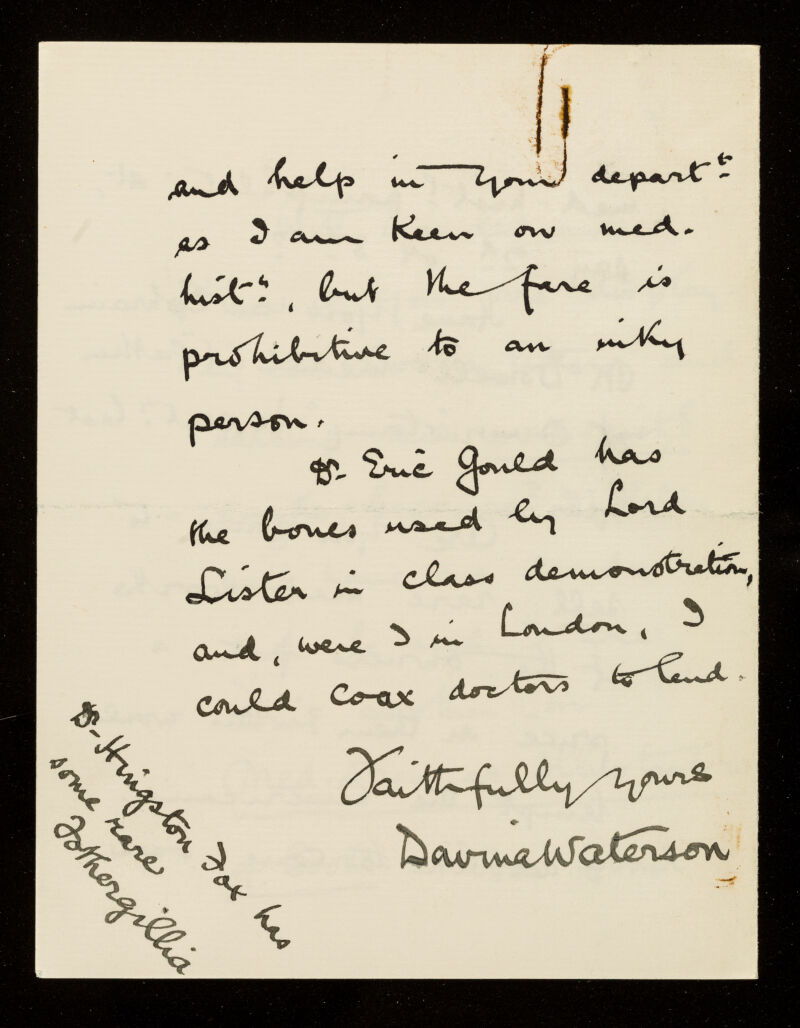 and help in your depart.t
as I am Keen on med.
hist.y, but the fare is
prohibitive to an inky
person.
Dr. Eric Gould has
the bones used by Lord
Lister in class demonstration,
and, were I in London, I
could coax doctors to lend.
Faithfully yours
Davina Waterson
Dr. Hingston Fox has
some rare
Fothergillia